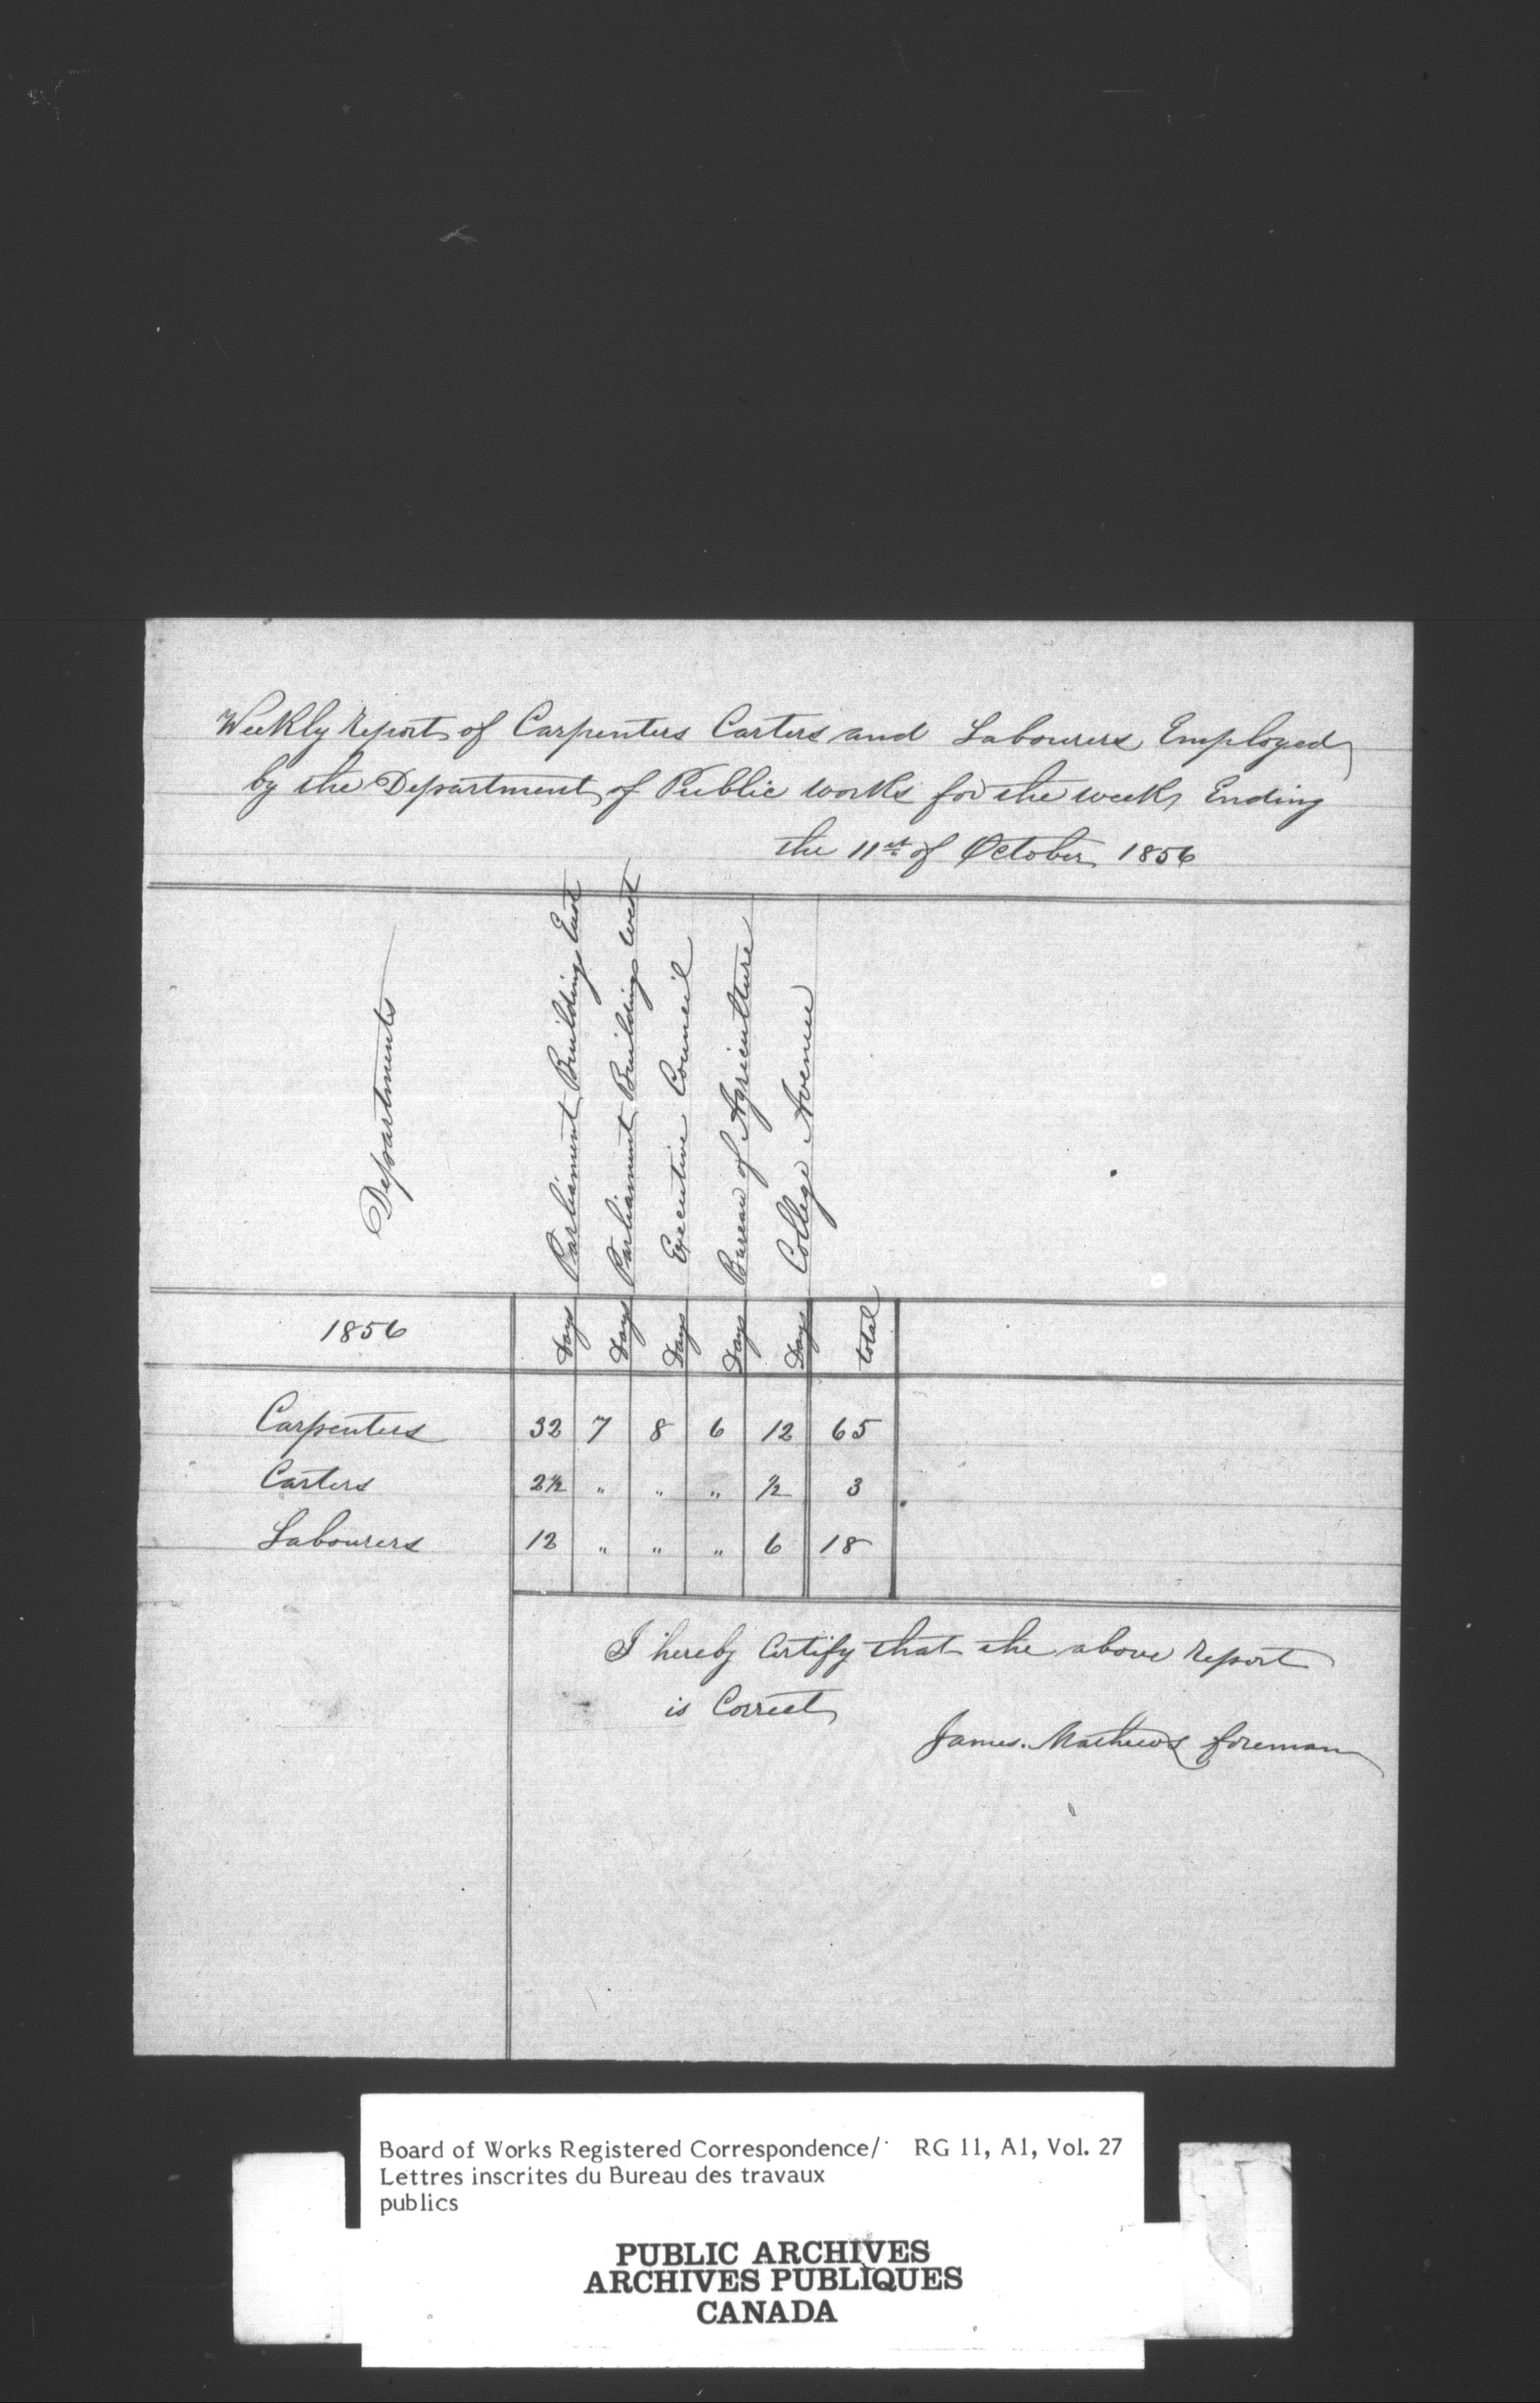 Weekly report of Carpenters Carters and Labourers Employed
by the Department of Public works for the week Ending
the 11st of October 1856
Departments
Parliament Buildings East
Parliament Buildings West
Executive Council
Bureau of Agriculture
College Avenue
1856 Days Days Days Days Days total
Carpenters 32 7 8 6 12 65
Carters 2½ " " " ½ 3
Labourers 12 " " " 6 18
I hereby Certify that the above report
is Correct
James. Mathews foreman
Board of Works Registered Correspondence/ RG 11, A1, Vol. 27
Lettres inscrites du Bureau des travaux
publics
PUBLIC ARCHIVES
ARCHIVES PUBLIQUES
CANADA